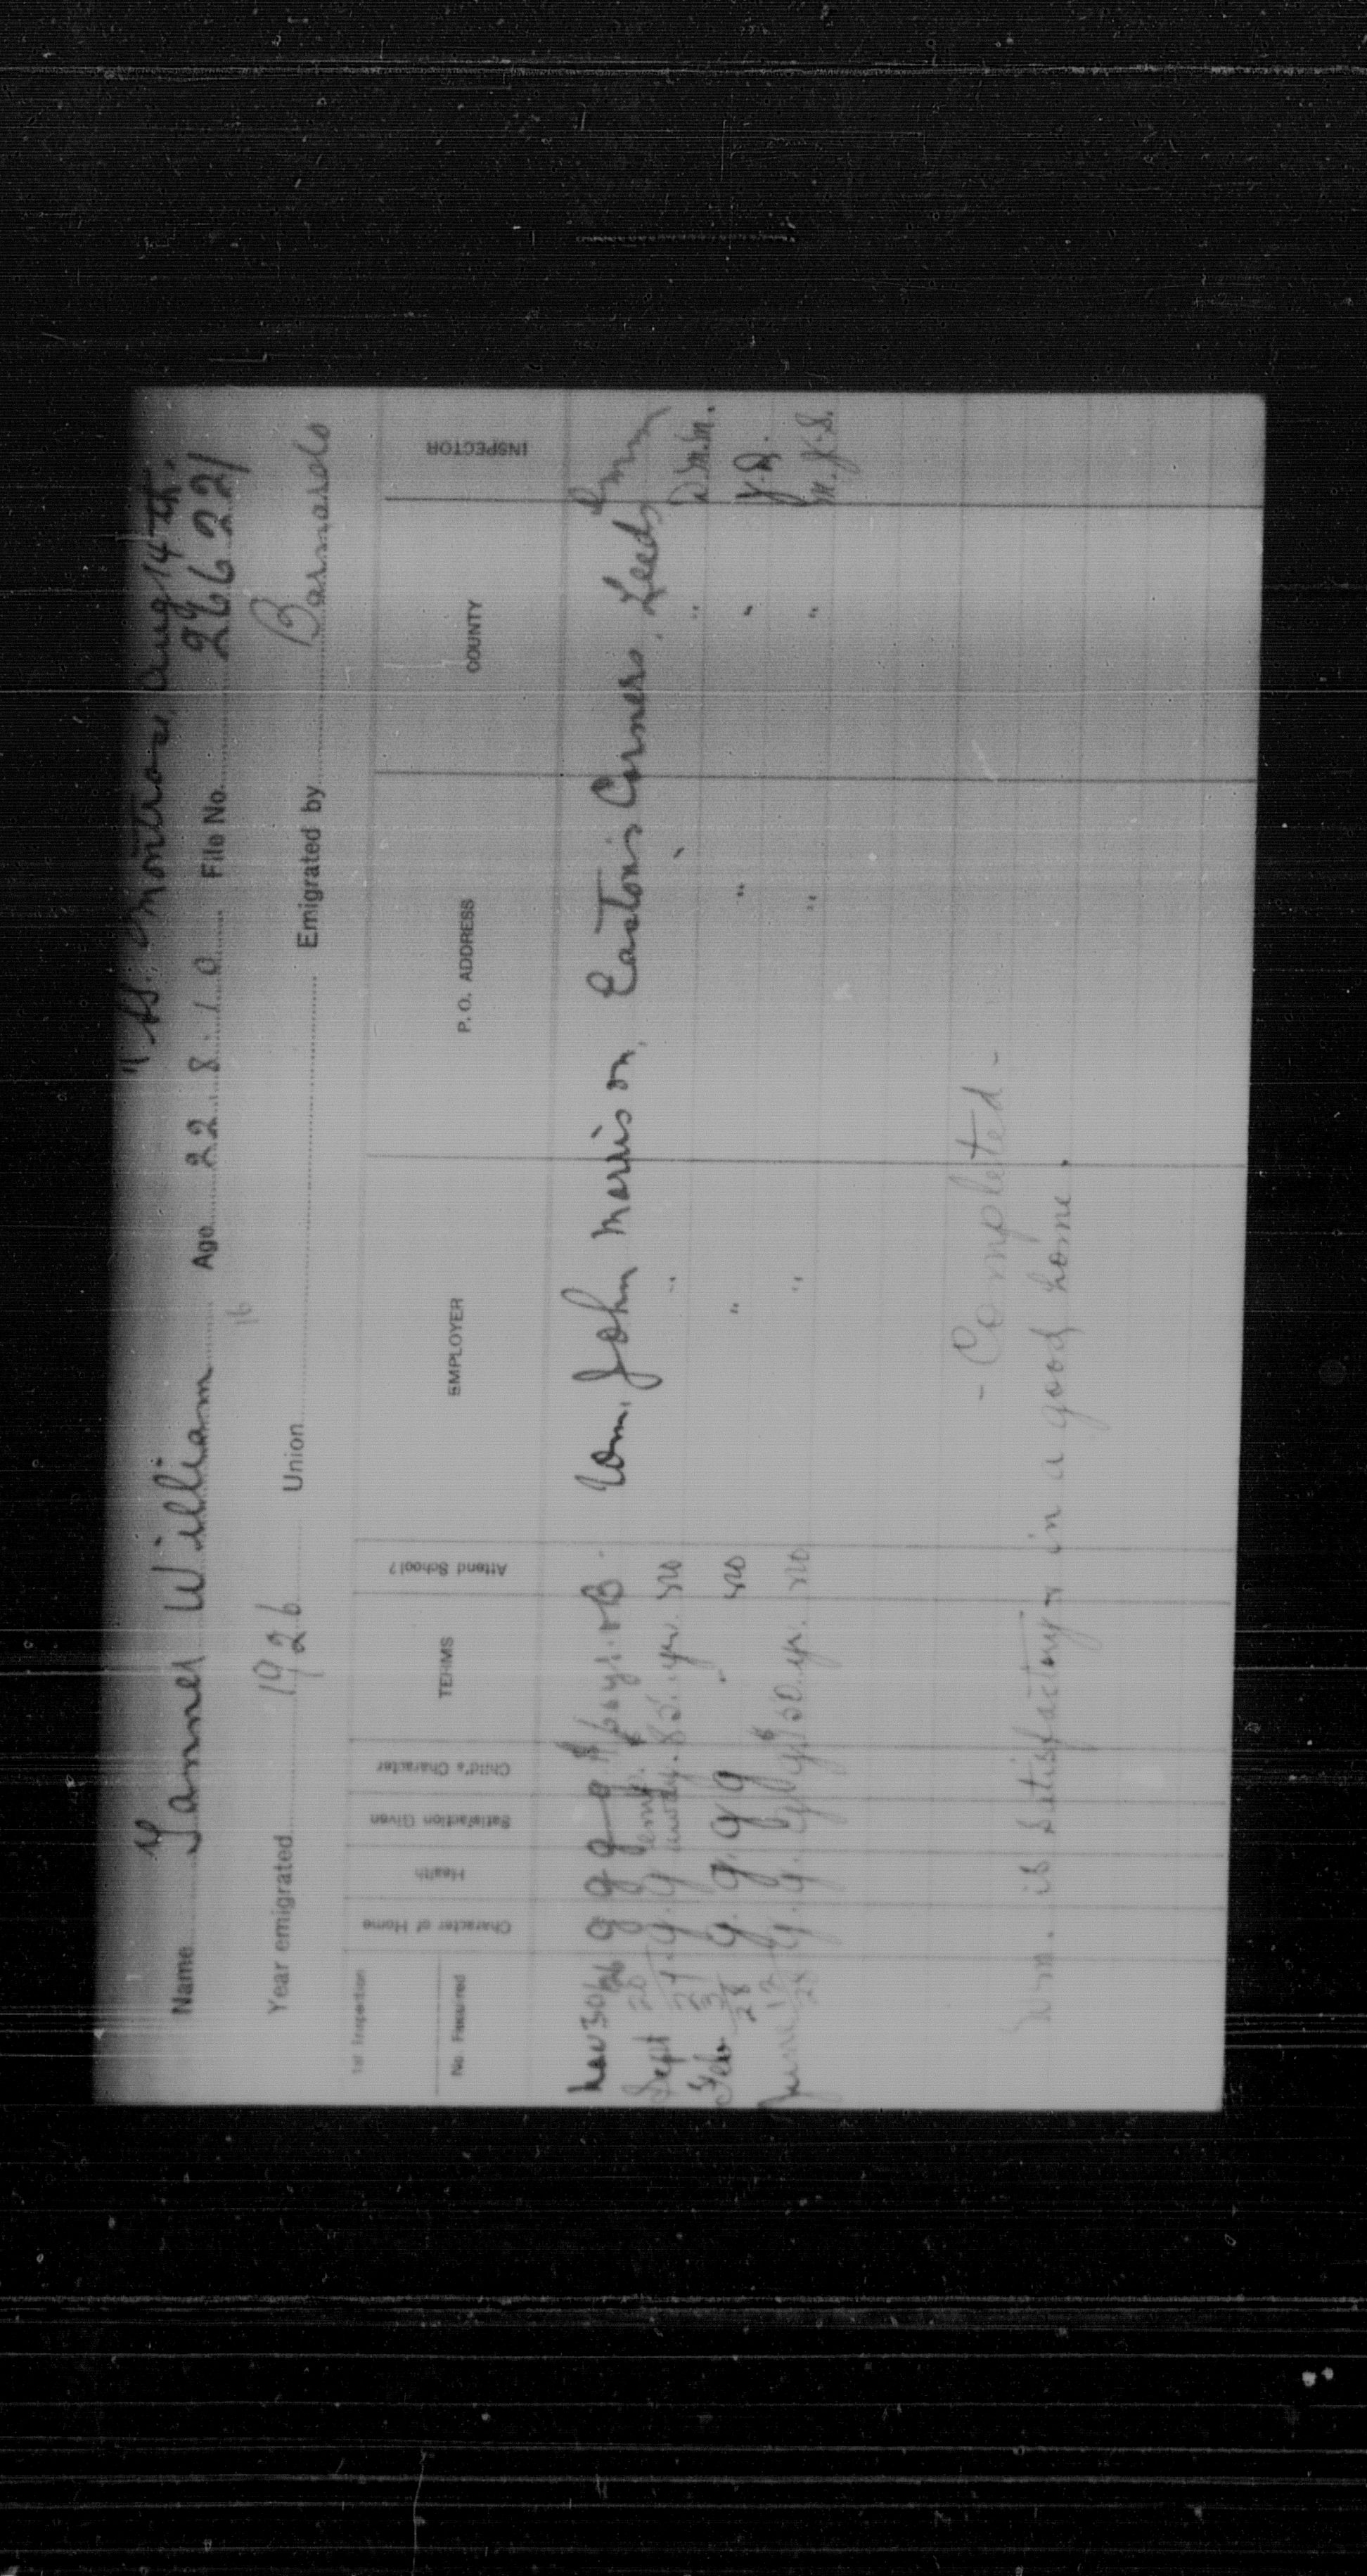 "SS. Montrose, Aug 14th.
Name Tanner William Age 22 8 10 File No. 266221
16
Year emigrated 1926 Union Emigrated by Barnardo
1st Inspection
No. Required Character of Home Health Satisfaction Given Child's Character TERMS Attend School? EMPLOYER P. O. ADDRESS COUNTY INSPECTOR
Nov 30/26 g g g g $ 60 yr. + B. Wm. John Morrison, Easton's Corners, Leeds
Sept 20 27 g. g emp. away. $ 85. yr. no " " " D.M.M.
Feb 3 28 g. g. g g " no " " " Y.D.
June 13 28 g. g. g g $ 150. yr. no " " " M.J.S.
- Completed -
Wm. is satisfactory & in a good home.